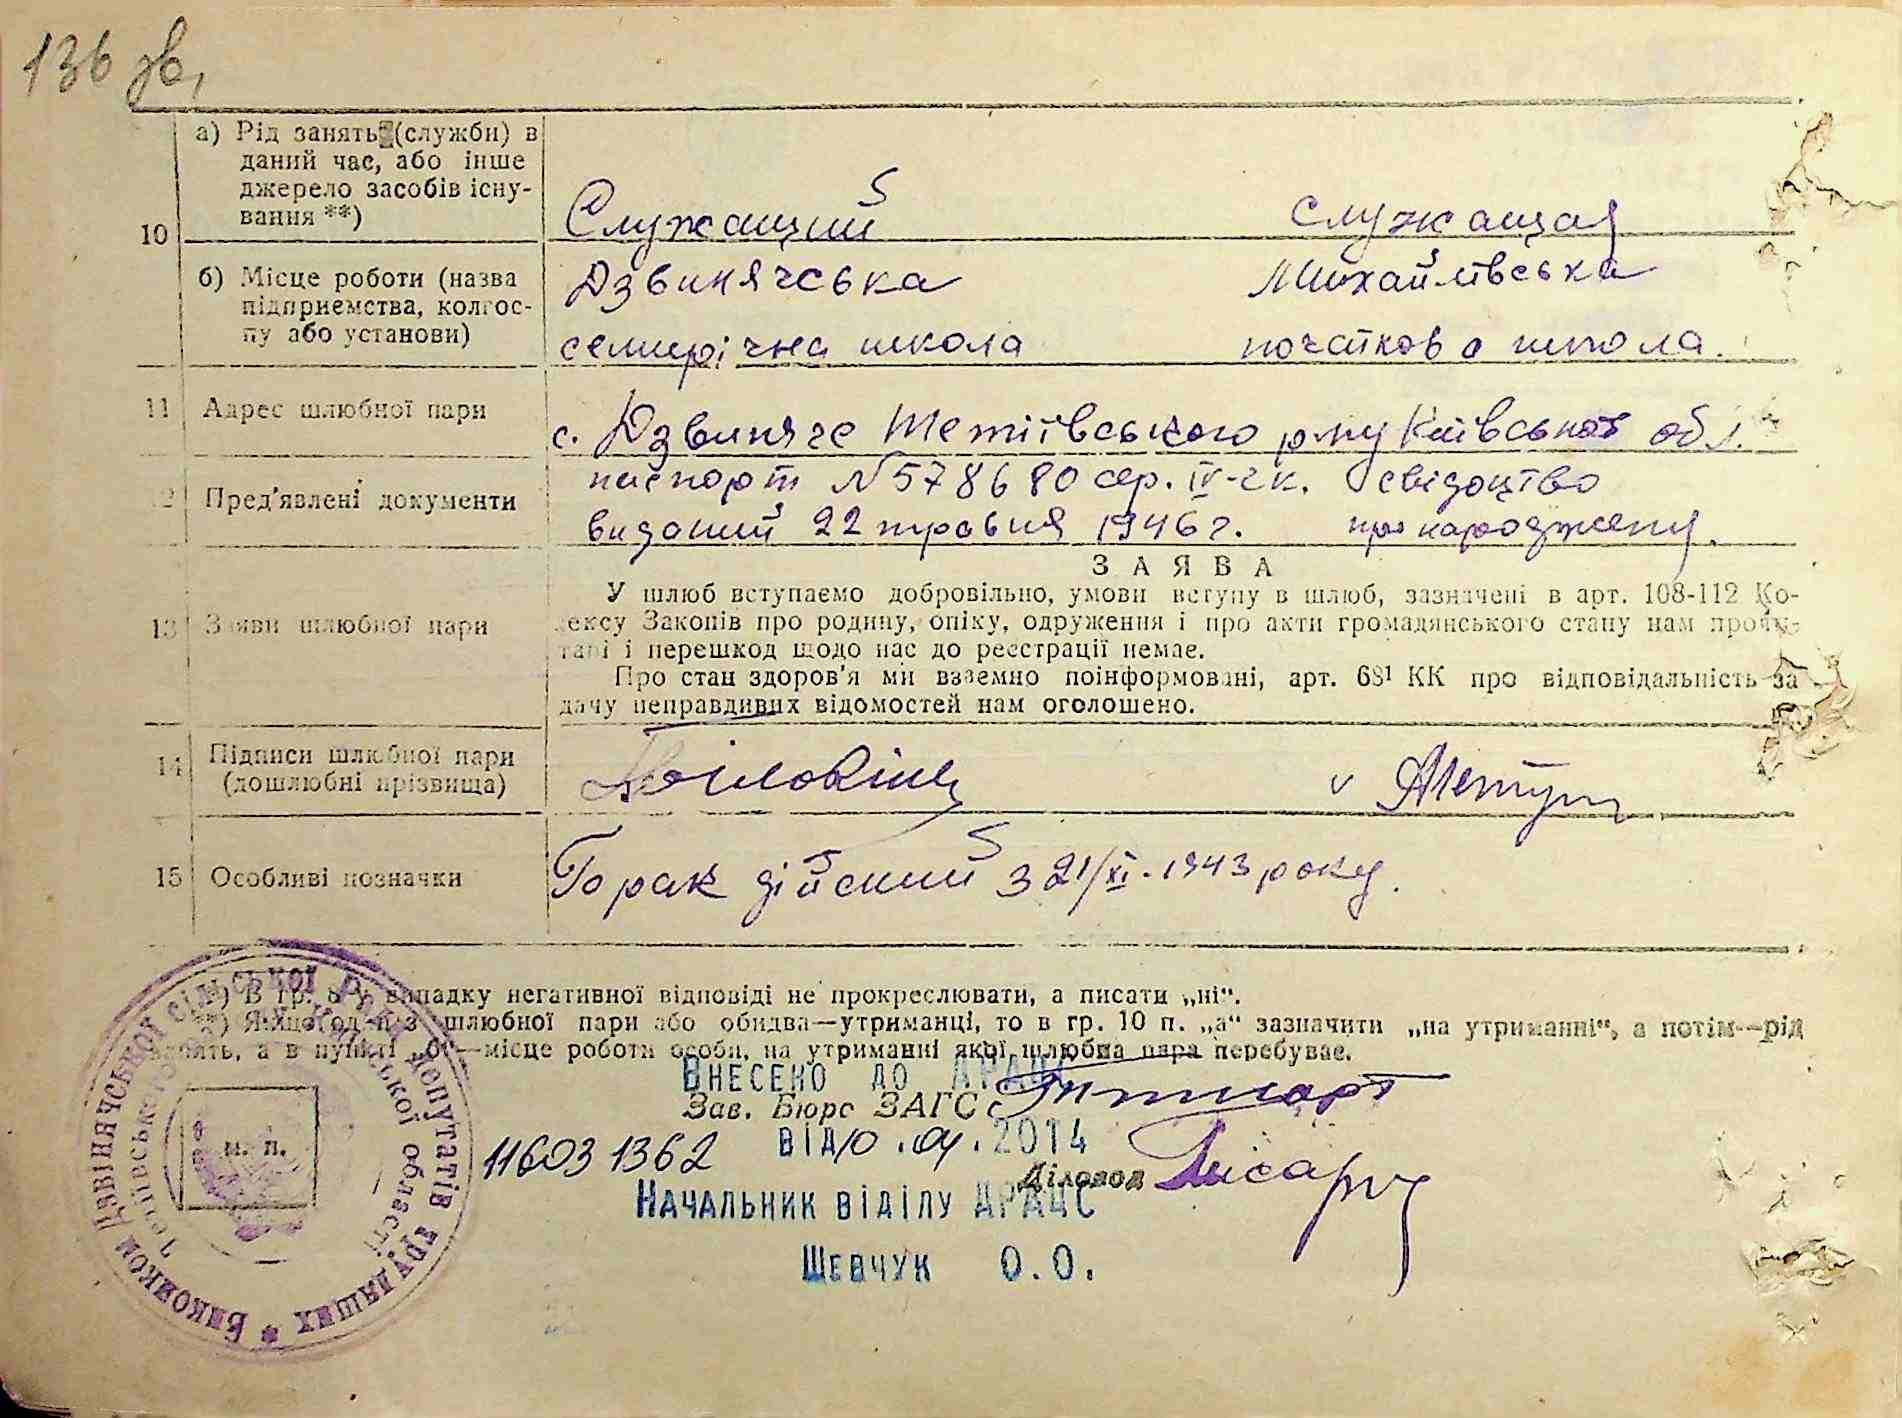 136 зв.
а) Рід занять (служби) в
даний час, або інше
джерело засобів існу-
вання **)
10
Служащий служащая
б) Місце роботи (назва
підприємства, колгос-
пу або установи)
Дзвинячська Михайлівська
семирічна школа початкова школа.
11 Адрес шлюбної пари
с. Дзвиняче Тетіївського р-ну Київської обл.
12 Пред'явлені документи
паспорт №578680 сер. IV-чк. свідоцтво
виданий 22 травня 1946 г. про народжену.
ЗАЯВА
13 Заяви шлюбної пари
У шлюб вступаємо добровільно, умови вступу в шлюб, зазначені в арт. 108-112 Ко-
дексу Законів про родину, опіку, одруження і про акти громадянського стану нам прочи-
тані і перешкод щодо нас до реєстрації немає.
Про стан здоров'я ми взаємно поінформовані, арт. 68¹ КК про відповідальність за
дачу неправдивих відомостей нам оголошено.
14 Підписи шлюбної пари
(дошлюбні прізвища)
15 Особливі позначки
Горак дійсний з 21/XI-1943 року.
*) В гр. 8 у випадку негативної відповіді не прокреслювати, а писати „ні“.
**) Якщо один з шлюбної пари або обидва—утриманці, то в гр. 10 п. „а“ зазначити „на утриманні“, а потім—рід
занять, а в пункті „б“—місце роботи особи, на утриманні якої шлюбна пара перебуває.
Внесено до ДРАЦС
Зав. Бюро ЗАГС
116031362 від 10.04.2014
Діловод Писарчу
Начальник відділу ДРАЦС
Шевчук О.О.
м. п.
Виконком Дзвінячської сільської Ради депутатів трудящих *
Тетіївського Київської області